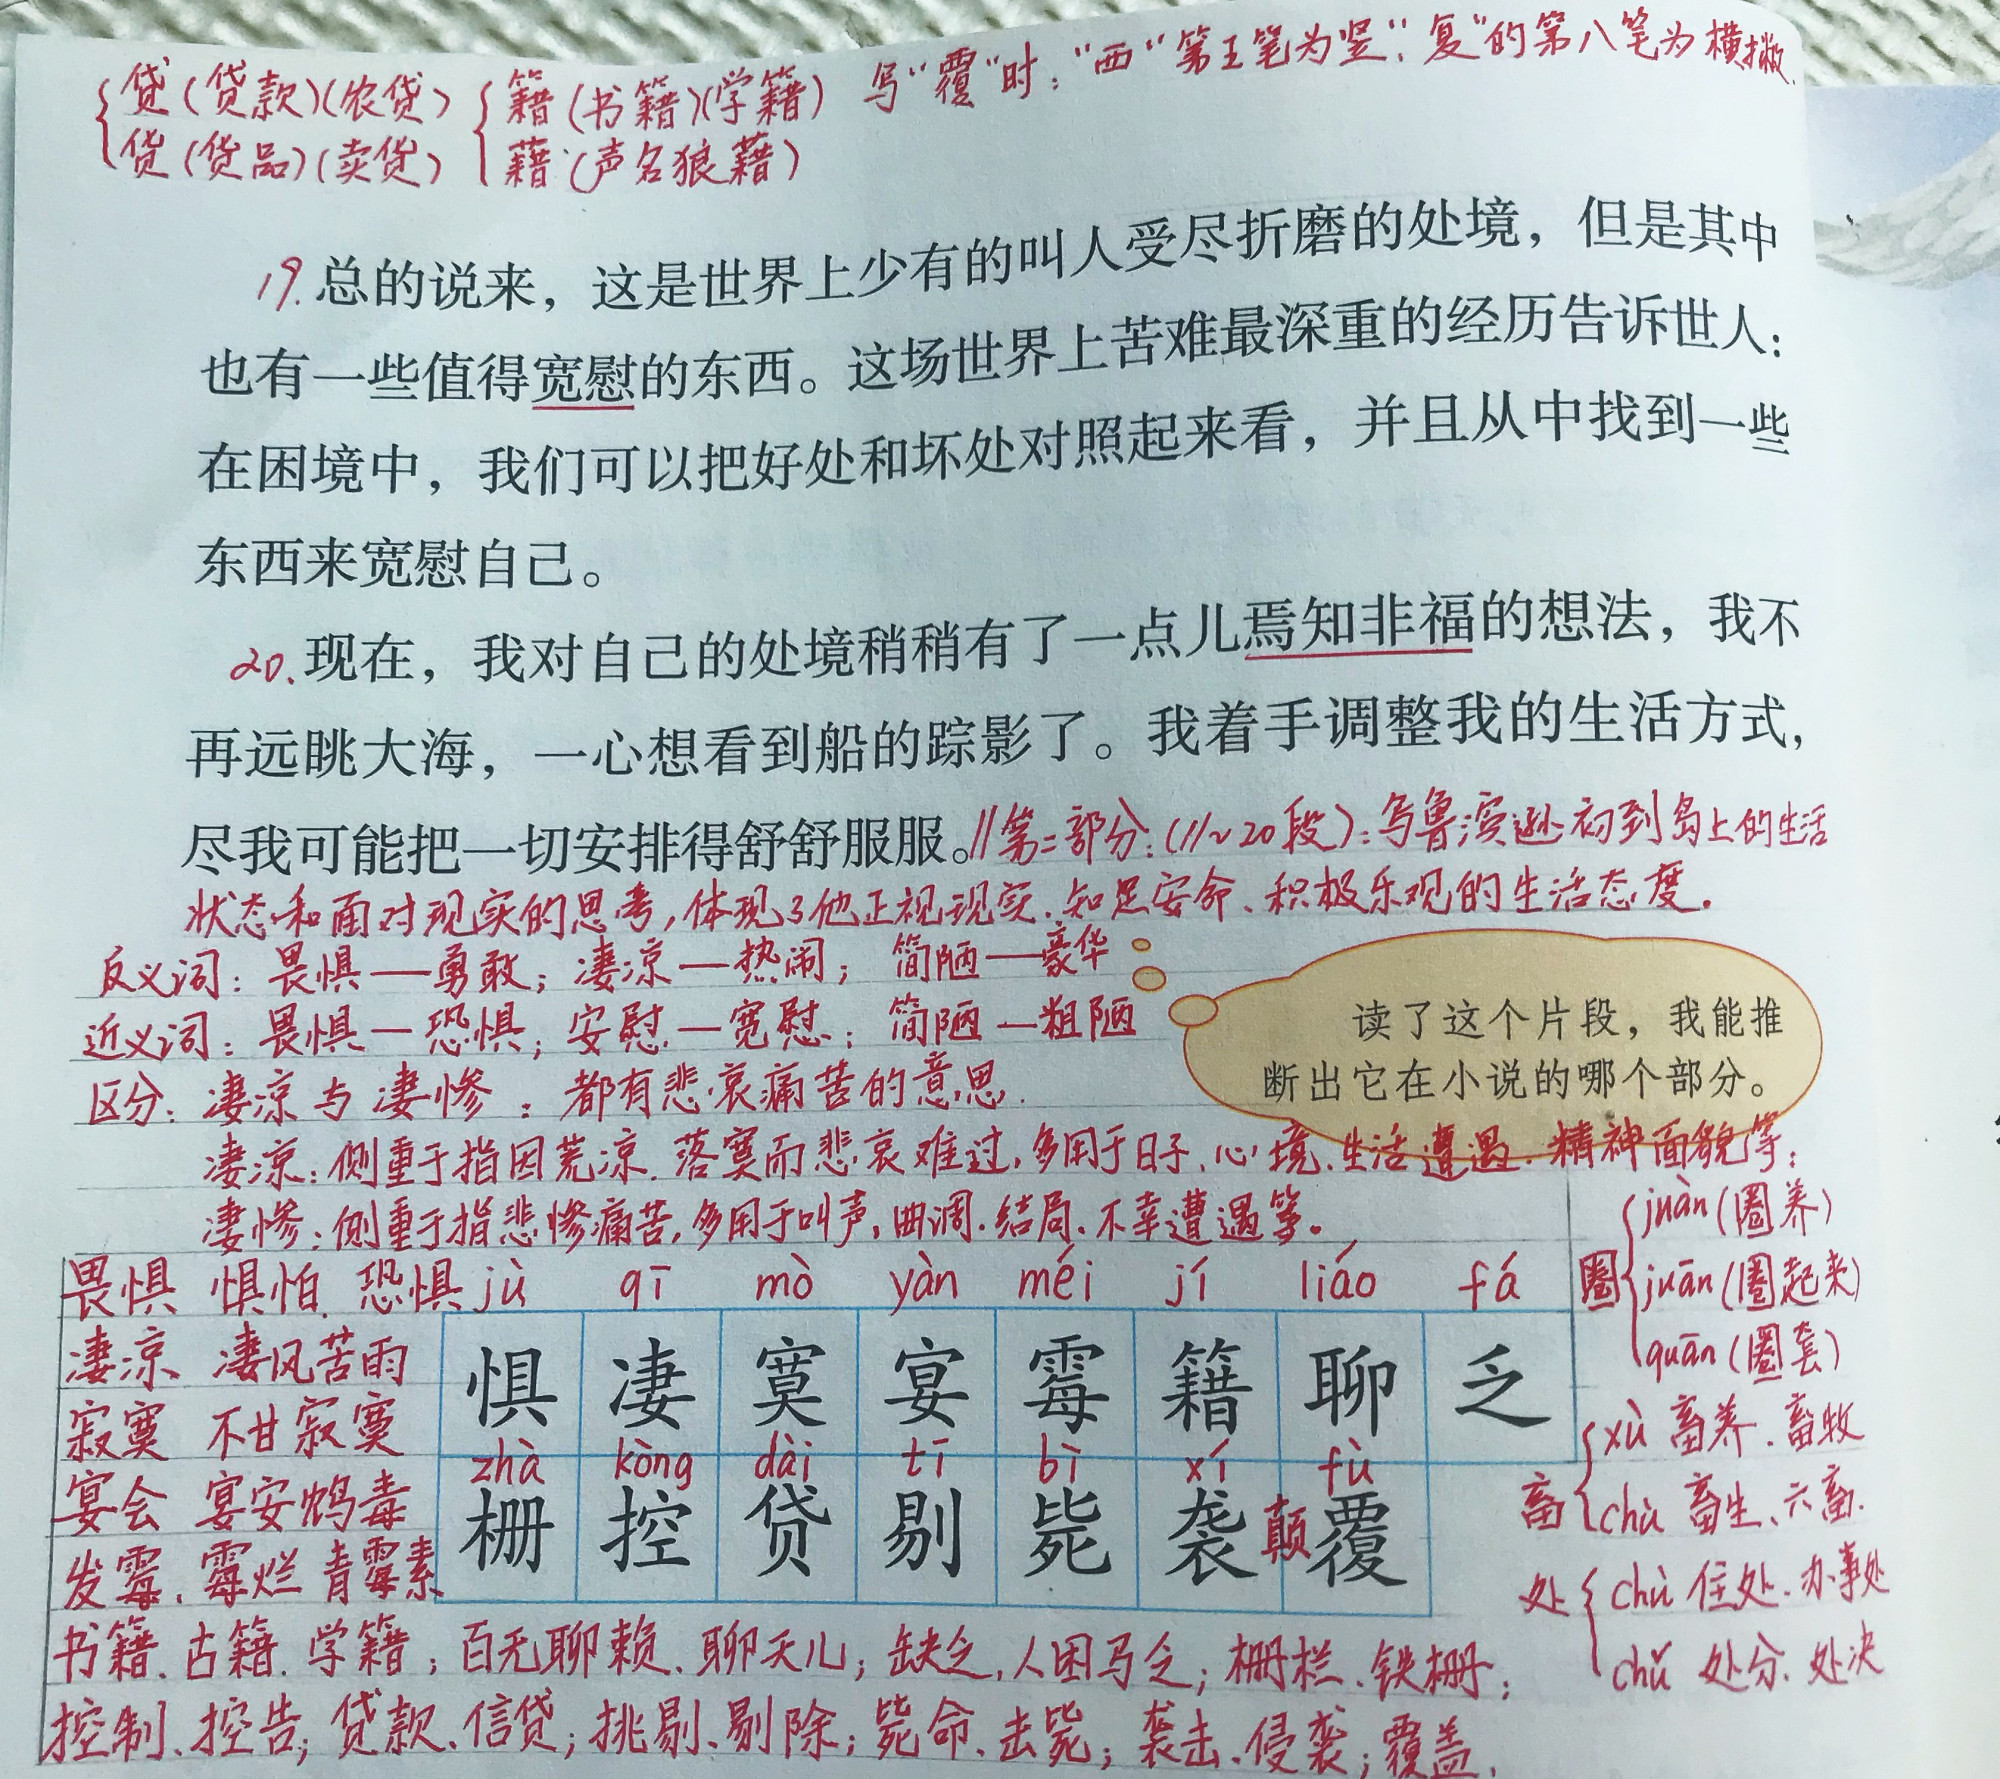 贷(贷款)(农贷)
货(货品)(卖货)
籍(书籍)(学籍)
藉(声名狼藉)
写"覆"时:"西"第五笔为竖,"复"的第八笔为横撇.
19.总的说来，这是世界上少有的叫人受尽折磨的处境，但是其中
也有一些值得宽慰的东西。这场世界上苦难最深重的经历告诉世人：
在困境中，我们可以把好处和坏处对照起来看，并且从中找到一些
东西来宽慰自己。
20.现在，我对自己的处境稍稍有了一点儿焉知非福的想法，我不
再远眺大海，一心想看到船的踪影了。我着手调整我的生活方式，
尽我可能把一切安排得舒舒服服。//第二部分:(11~20段):写鲁滨逊初到岛上的生活
状态和面对现实的思考,体现了他正视现实、知足安命、积极乐观的生活态度。
反义词:畏惧—勇敢;凄凉—热闹;简陋—豪华
近义词:畏惧—恐惧;安慰—宽慰;简陋—粗陋
读了这个片段，我能推
断出它在小说的哪个部分。
区分:凄凉与凄惨:都有悲哀痛苦的意思.
凄凉:侧重于指因荒凉、落寞而悲哀难过,多用于日子、心境、生活遭遇、精神面貌等;
凄惨:侧重于指悲惨痛苦,多用于叫声,曲调、结局、不幸遭遇等。
畏惧 惧怕、恐惧
凄凉 凄风苦雨
寂寞 不甘寂寞
宴会 宴安鸩毒
发霉、霉烂 青霉素
jù qī mò yàn méi jí liáo fá
惧 凄 寞 宴 霉 籍 聊 乏
zhà kòng dài tī bì xí fù
栅 控 贷 剔 毙 袭 颠覆
圈
juàn(圈养)
juān(圈起来)
quān(圈套)
畜
xù 畜养、畜牧
chù 畜生、六畜.
处
chù 住处、办事处
chǔ 处分、处决
书籍、古籍、学籍;百无聊赖、聊天儿;缺乏,人困马乏;栅栏、铁栅;
控制、控告;贷款、信贷;挑剔、剔除;毙命、击毙;袭击、侵袭;覆盖、